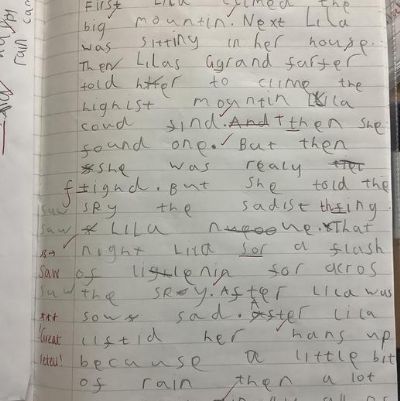 First Lila climed the
big mountin. Next Lila
was sitting in her house.
Then Lilas Agrand farter
told her to clime the
highist mountin Lila
coud find. And then she
found one. But then
she was realy
ftignd. But she told the
saw sry the sadist thing
saw Lila That
night Lila sor a flash
saw of for acros
saw the sky. After Lila was
sow sad. After Lila
Great liftid her hans up
because a little bit
of rain then a lot
rain